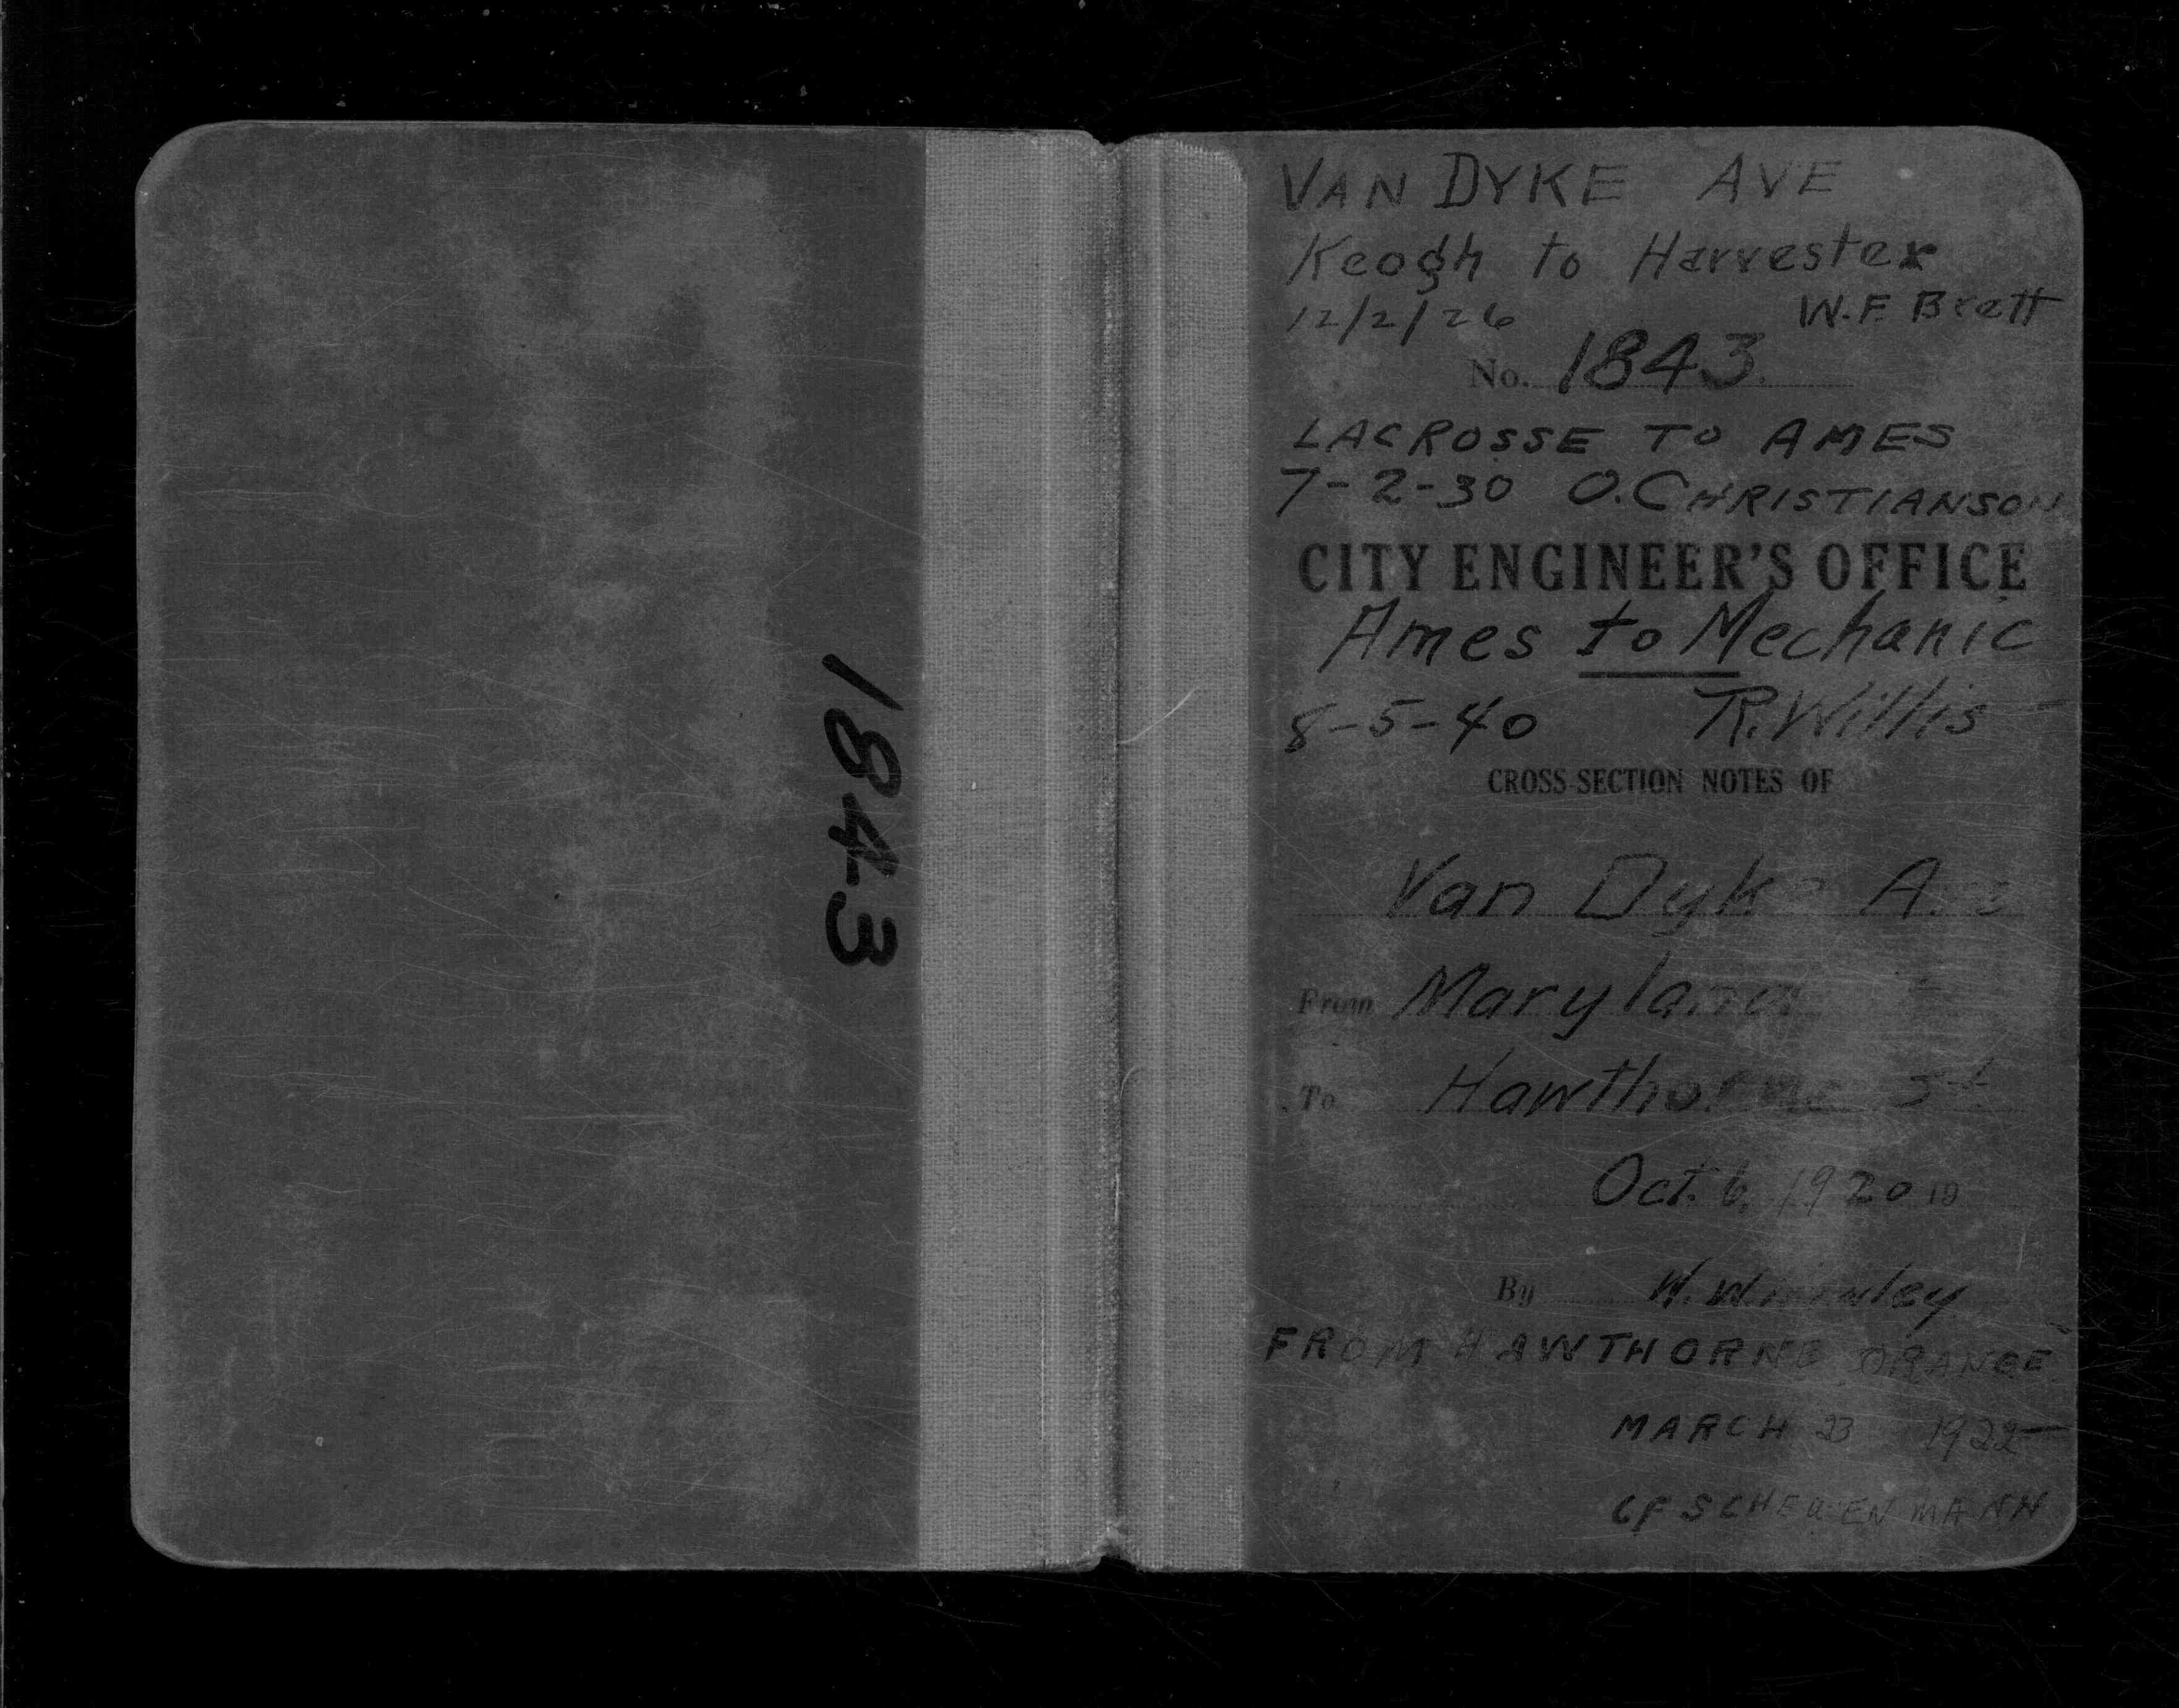 1843
VAN DYKE AVE
Keogh to Harvester
12/2/26 W.F. Brett
No. 1843
LACROSSE TO AMES
7-2-30 O. CHRISTIANSON
CITY ENGINEER'S OFFICE
Ames to Mechanic
8-5-40 R. Willis
CROSS-SECTION NOTES OF
Van Dyke Ave
From Maryland
To Hawthorne St
Oct. 6, 1920 19
By W.
FROM HAWTHORNE ORANGE
MARCH 23 1922
CF SCHEUENMANN